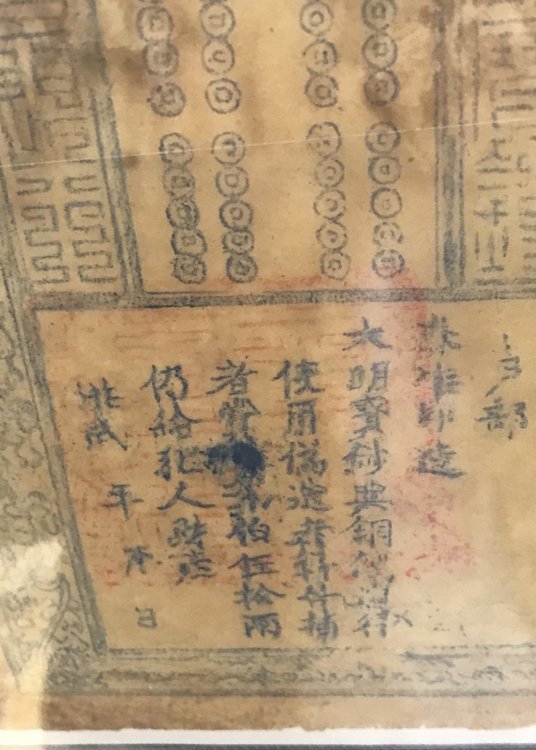 户部
奏准印造
大明寶鈔與銅錢通行
使用偽造者斬告捕
者賞 佰伍拾兩
仍給犯人財産
洪武 年 月 日